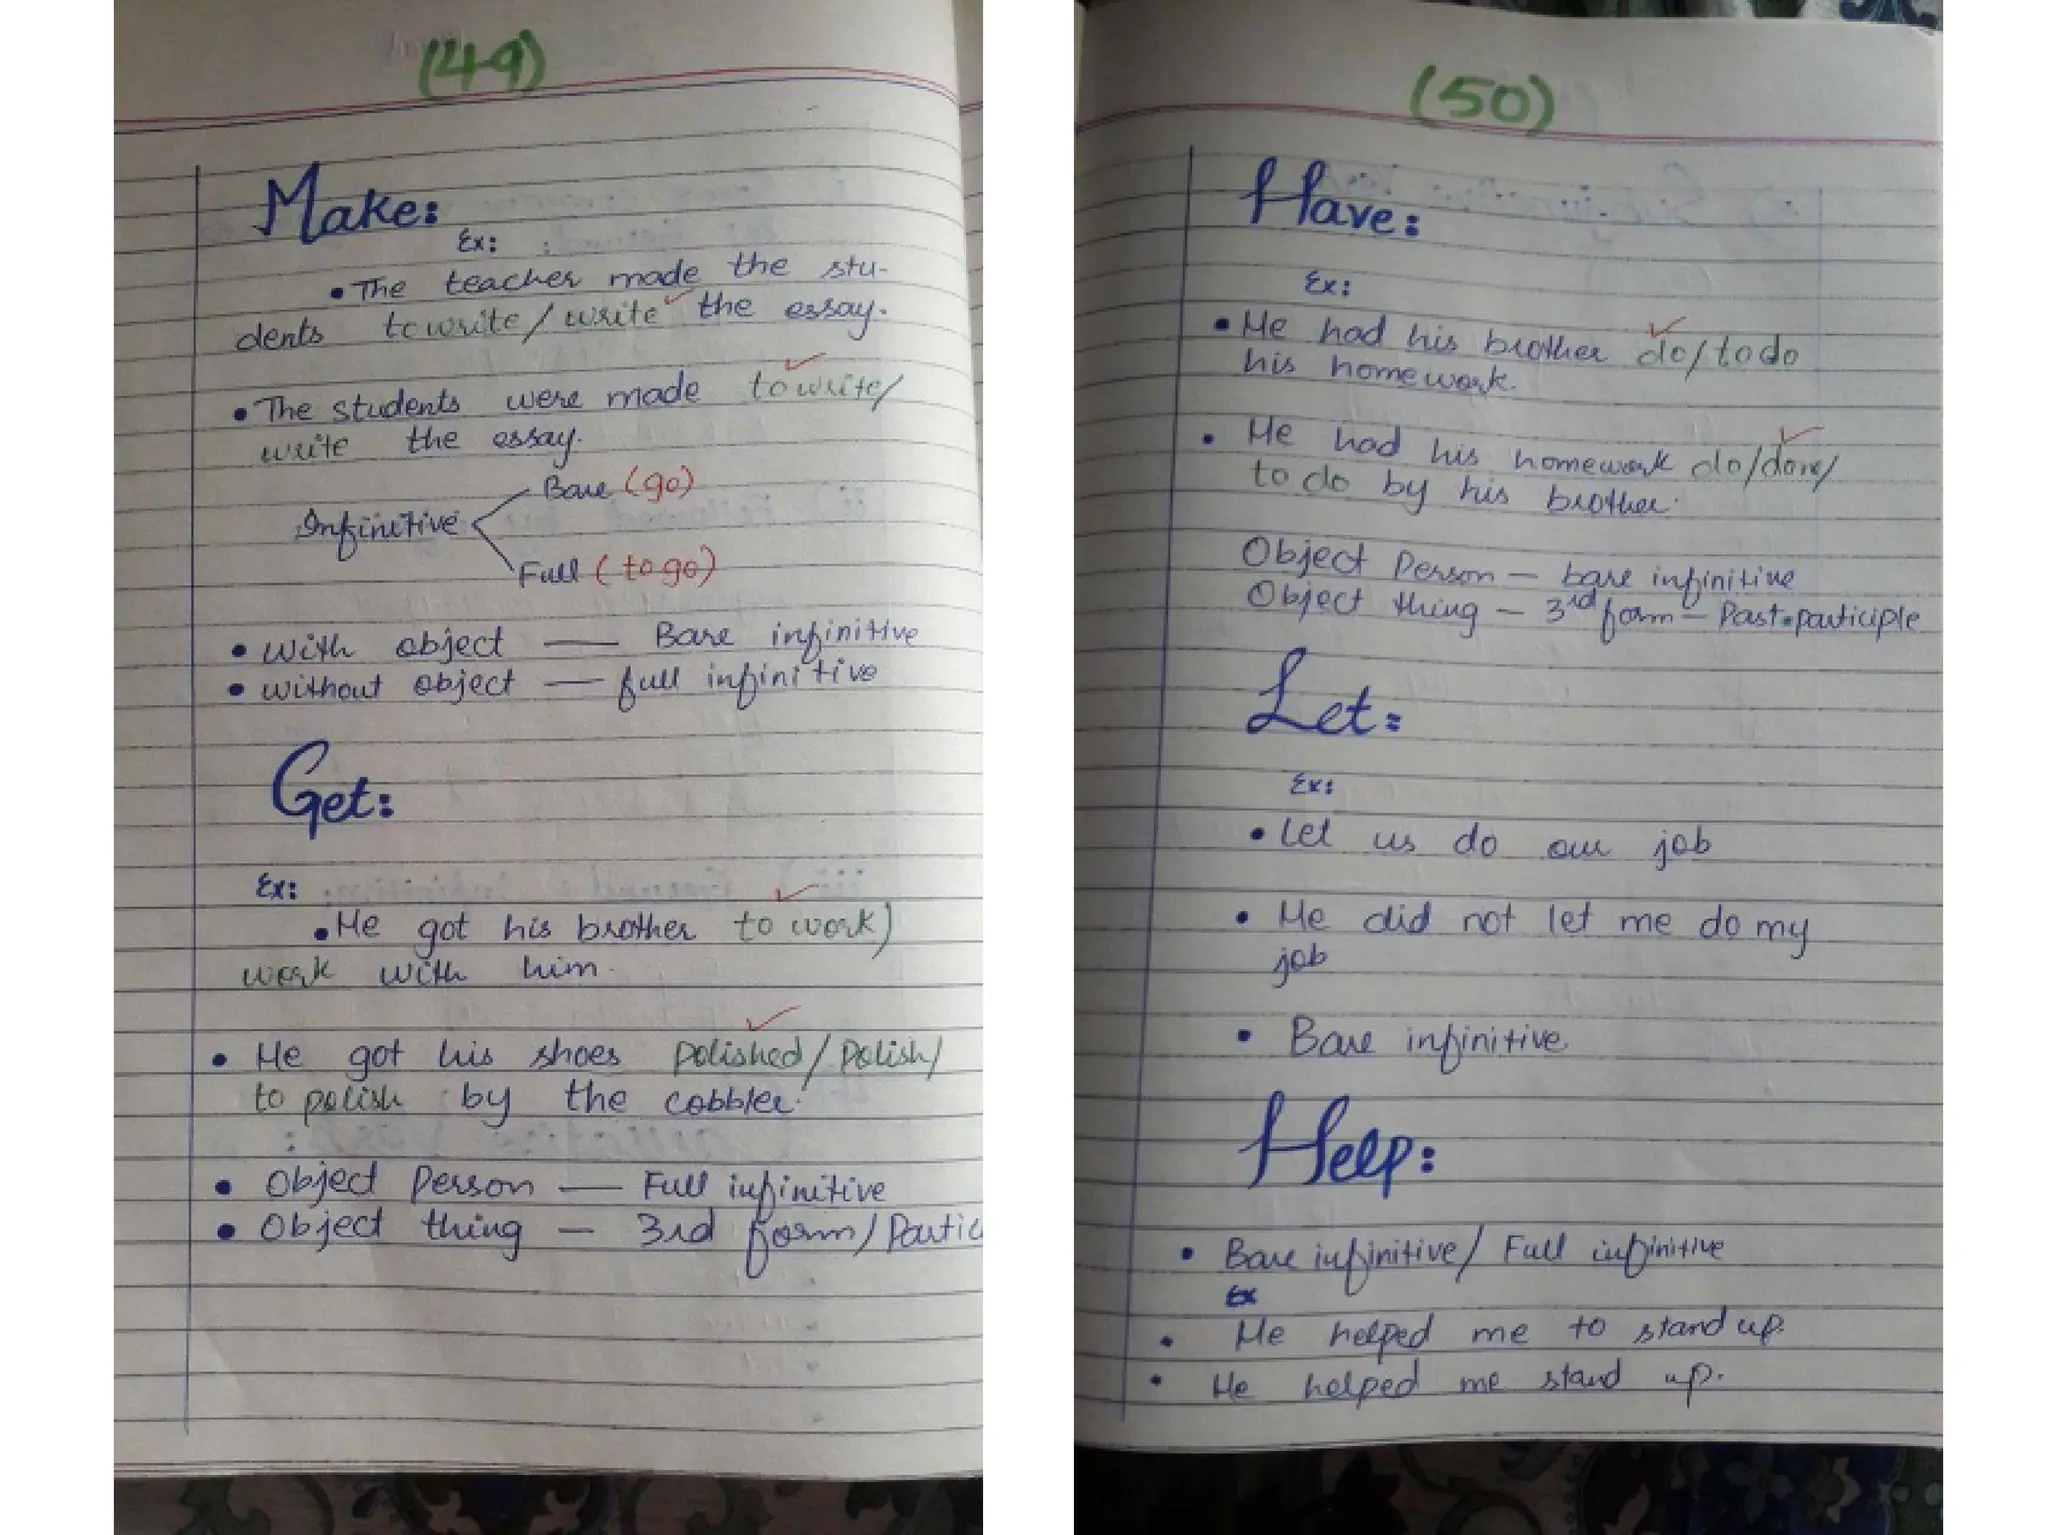 (49)
Make:
Ex:
• The teacher made the stu-
dents to write / write the essay.
• The students were made to write/
write the essay.
Bare (go)
Infinitive
Full (to go)
• with object — Bare infinitive
• without object — full infinitive
Get:
Ex:
• He got his brother to work)
work with him.
• He got his shoes polished / polish/
to polish by the cobbler.
• Object Person — Full infinitive
• Object thing — 3rd form / Partic
(50)
Have:
Ex:
• He had his brother do/to do
his homework.
• He had his homework do/done/
to do by his brother.
Object Person — bare infinitive
Object thing — 3rd form — Past participle
Let:
Ex:
• Let us do our job
• He did not let me do my
job
• Bare infinitive
Help:
• Bare infinitive / Full infinitive
Ex
• He helped me to stand up.
• He helped me stand up.